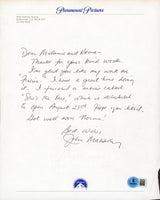 Paramount Pictures
Dear Melanie and Norma –
Thanks for your kind words.
I'm glad you like my work on
"Frasier". I have a great time doing
it. I finished a movie called
"She's the One", which is scheduled
to open August 23rd. Hope you like it.
Get well soon Norma!
Best Wishes,
John Mahoney